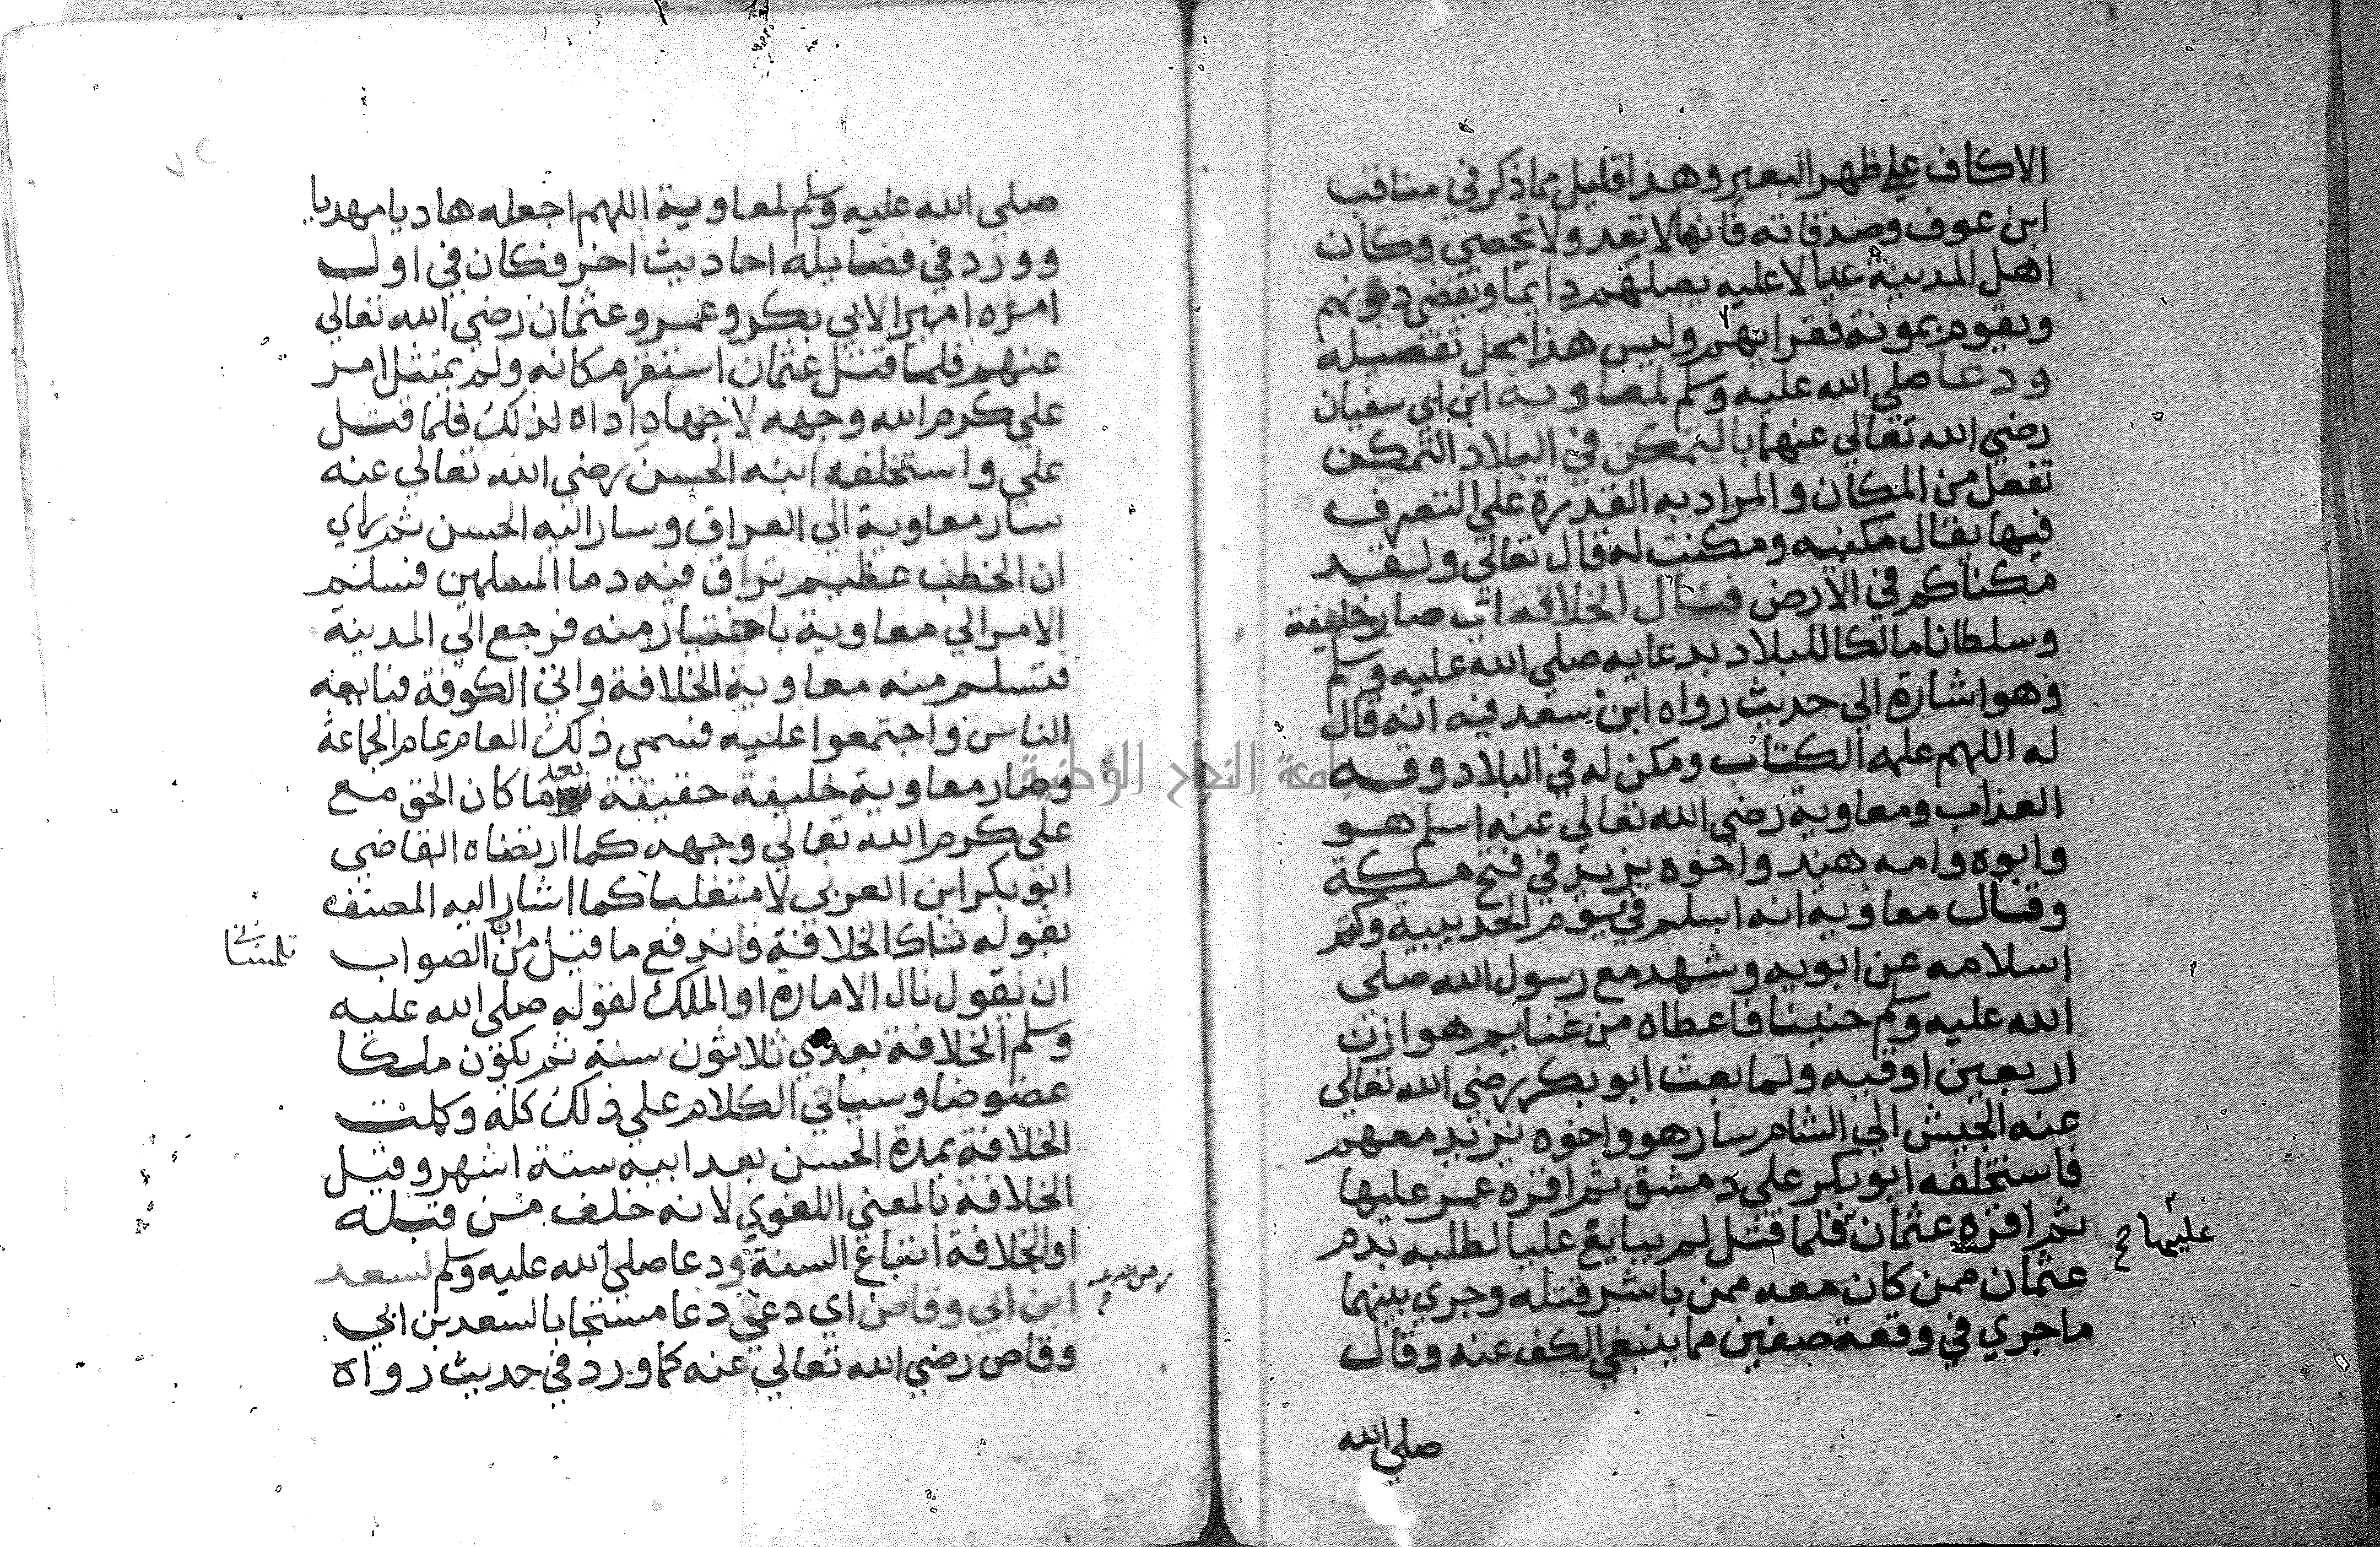 الاكاف علي ظهر البعير وهذا قليل مما ذكر في مناقب
ابن عوف وصدقاته فانها لا تعد ولا تحصي وكان
اهل المدينة عيالا عليه يصلهم دايما ويقضي ديونهم
ويقوم بمونة فقرايهم وليس هذا محل تفصيله
ودعا صلي الله عليه وسلم لمعاوية ابن ابي سفيان
رضي الله تعالي عنهما بالتمكن في البلاد التمكن
تفعل من المكان والمراد به القدرة علي التصرف
فيها يقال مكنيه ومكنت له قال تعالي ولقد
مكناكم في الارض فنال الخلافة اي صار خليفة
وسلطانا مالكا للبلاد بدعايه صلي الله عليه وسلم
وهو اشارة الي حديث رواه ابن سعد فيه انه قال
له اللهم علمه الكتاب ومكن له في البلاد وقه
العذاب ومعاوية رضي الله تعالي عنه اسلم هو
وابوه وامه هند واخوه يزيد في فتح مكة
وقال معاوية انه اسلم في يوم الحديبية وكتم
اسلامه عن ابويه وشهد مع رسول الله صلى
الله عليه وسلم حنينا فاعطاه من غنايم هوازن
اربعين اوقيه ولما بعث ابو بكر رضي الله تعالي
عنه الجيش الي الشام سار هو واخوه يزيد معهم
فاستخلفه ابو بكر علي دمشق ثم اقره عمر عليها
ثم اقره عثمان فلما قتل لم يبايع عليا لطلبه بدم
عليهما ح
عثمان ممن كان معه ممن باشر قتله وجري بينهما
ما جري في وقعة صفين مما ينبغي الكف عنه وقال
صلي الله
صلي الله عليه وسلم لمعاوية اللهم اجعله هاديا مهديا
وورد في فضايله احاديث اخر فكان في اول
امره اميرا لابي بكر وعمر وعثمان رضي الله تعالي
عنهم فلما قتل عثمان استقر مكانه ولم يمتثل امر
علي كرم الله وجهه لاجتهاد اداه لذلك فلما قتل
علي واستخلفه ابنه الحسن رضي الله تعالي عنه
سار معاوية الي العراق وسار اليه الحسن ثم راي
ان الخطب عظيم تراق فيه دما المسلمين فسلم
الامر الي معاوية باختيار منه فرجع الي المدينة
فتسلم منه معاوية الخلافة واتي الكوفة فبايعه
الناس واجتمعوا عليه فسمي ذلك العام عام الجماعة
وصار معاوية خليفة حقيقة بعد ما كان الحق مع
علي كرم الله تعالي وجهه كما ارتضاه القاضي
ابو بكر ابن العربي لا متغلبا كما اشار اليه المصنف
بقوله فنال الخلافة فاندفع ما قيل من ان الصواب
ان يقول نال الامارة او الملك لقوله صلي الله عليه
وسلم الخلافة بعدي ثلاثون سنة ثم يكون ملكا
عضوضا وسياتي الكلام علي ذلك كله وكملت
الخلافة بمدة الحسن بعد ابيه ستة اشهر وقيل
الخلافة بالمعني اللغوي لانه خلف من قبله
او الخلافة اتباع السنة ودعا صلي الله عليه وسلم لسعد
ابن ابي وقاص اي دعي دعا مستجابا لسعد بن ابي
رضي الله عنه
وقاص رضي الله تعالي عنه كما ورد في حديث رواه
جامعة النجاح الوطنية